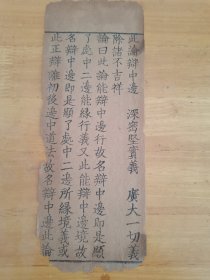 此論辯中邊　深密堅實義　廣大一切義
除諸不吉祥
論曰此論能辯中邊行故名辯中邊即是顯
了處中二邊能緣行義又此能辯中邊境故
名辯中邊即是顯了處中二邊所緣境義或
此正辯離初後邊中道法故名辯中邊此論